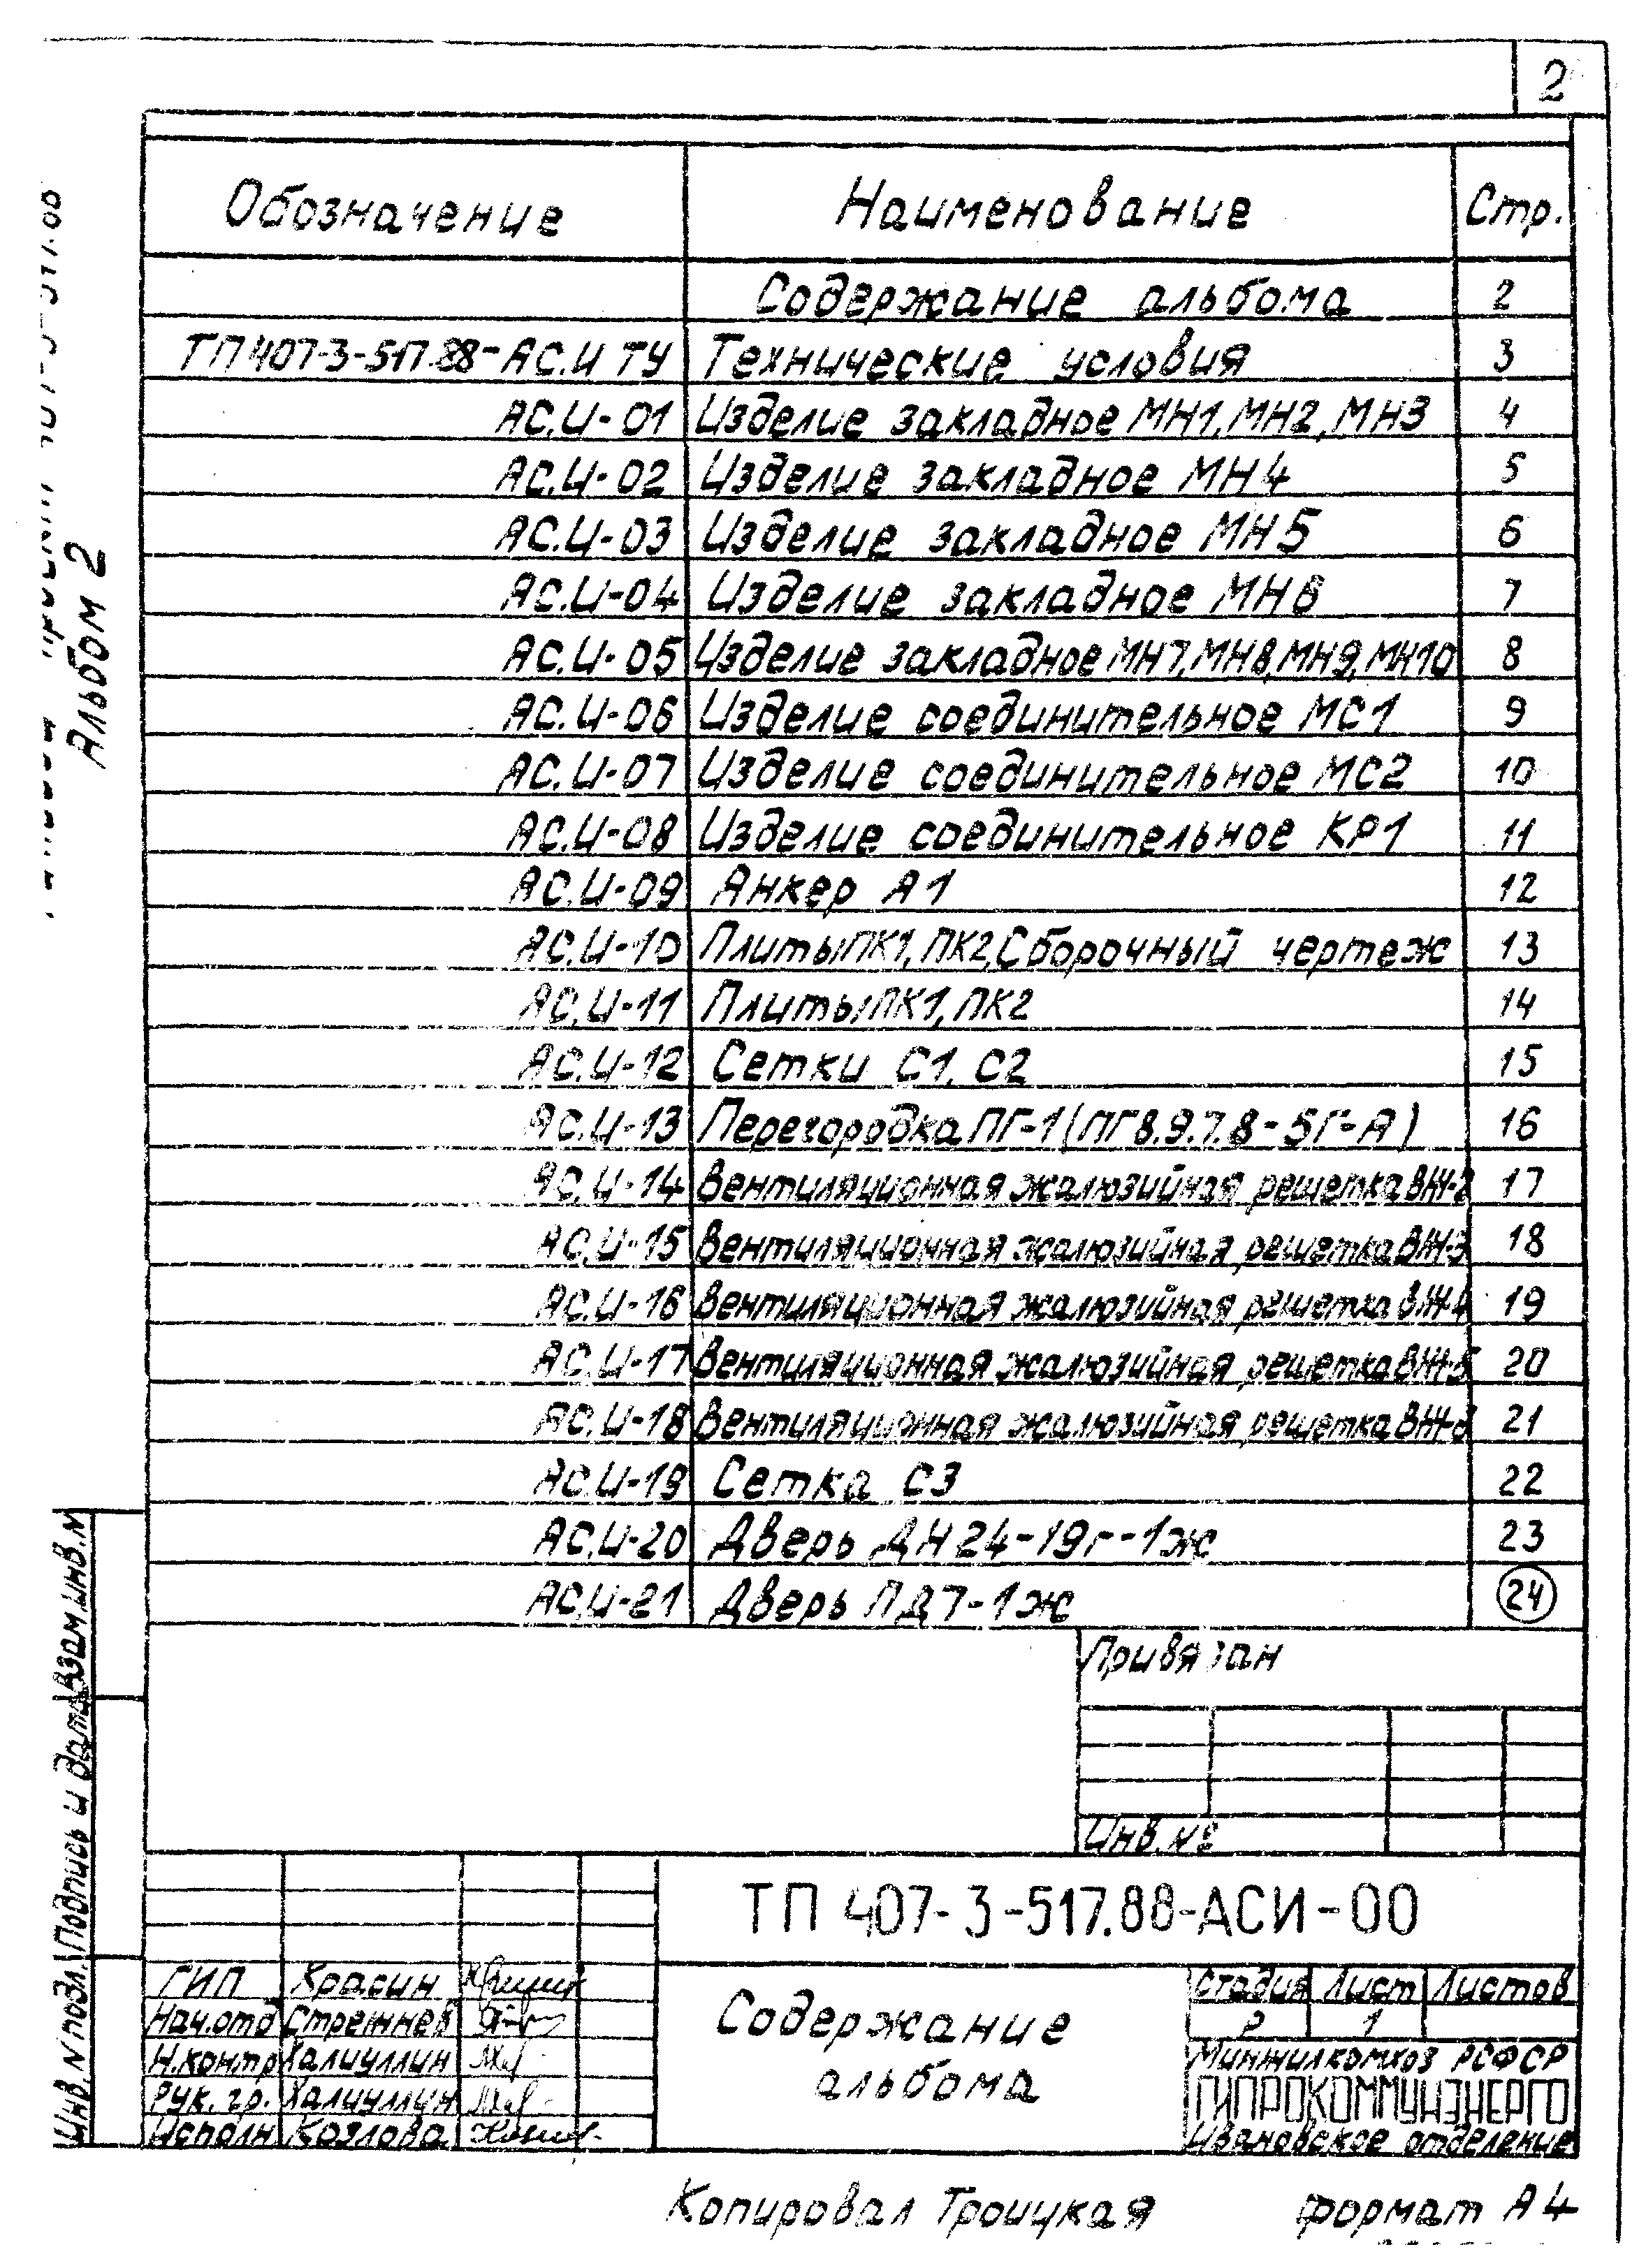 2
Обозначение Наименование Стр.
Содержание альбома 2
ТП 407-3-517.88-АС.И ТУ Технические условия 3
АС.И-01 Изделие закладное МН1, МН2, МН3 4
АС.И-02 Изделие закладное МН4 5
АС.И-03 Изделие закладное МН5 6
АС.И-04 Изделие закладное МН6 7
АС.И-05 Изделие закладное МН7, МН8, МН9, МН10 8
АС.И-06 Изделие соединительное МС1 9
АС.И-07 Изделие соединительное МС2 10
АС.И-08 Изделие соединительное КР1 11
АС.И-09 Анкер А1 12
АС.И-10 Плиты ПК1, ПК2, Сборочный чертеж 13
АС.И-11 Плиты ПК1, ПК2 14
АС.И-12 Сетки С1, С2 15
АС.И-13 Перегородка ПГ-1 (ПГ 8.9.7.8-5Г-А) 16
АС.И-14 Вентиляционная жалюзийная решетка ВЖ-2 17
АС.И-15 Вентиляционная жалюзийная решетка ВЖ-3 18
АС.И-16 Вентиляционная жалюзийная решетка ВЖ-4 19
АС.И-17 Вентиляционная жалюзийная решетка ВЖ-5 20
АС.И-18 Вентиляционная жалюзийная решетка 21
АС.И-19 Сетка С3 22
АС.И-20 Дверь ДН 24-19г-1ж 23
АС.И-21 Дверь ПД7-1ж 24
Альбом 2
Привязан
Инв. №
Взам. инв. N
Подпись и дата
Инв. N подл.
ТП 407-3-517.88-АСИ-00
ГИП Храсин
Нач.отд Стрежнев
Н.контр Халиуллин
Рук. гр. Халиуллин
Исполн Козлова
Содержание
альбома
Стадия Лист Листов
Р 1
Минжилкомхоз РСФСР
ГИПРОКОММУНЭНЕРГО
Ивановское отделение
Копировал Троицкая формат А4